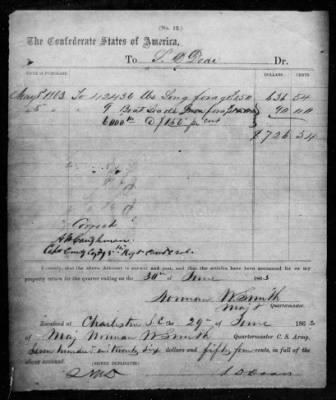 (No. 12.)
The Confederate States of America,
To S. O. Dodi Dr.
DATE OF PURCHASE. DOLLARS CENTS
May 8 1863 To 42436 lbs Long forage @ 1.50 636 54
" 9 Boat Loads 90 00
6000 lbs @ $1.50 pr cwt
$726 54
Correct
I certify, that the above Account is correct and just, and that the articles have been accounted for on my
property return for the quarter ending on the 30th of June 1863
Norman W Smith
Maj & Quartermaster.
Received at Charleston S.C. the 29th of June 1863
of Maj Norman W Smith Quartermaster C. S. Army,
Seven hundred & twenty six dollars and fifty four cents, in full of the
above account.
(SIGNED DUPLICATES.)